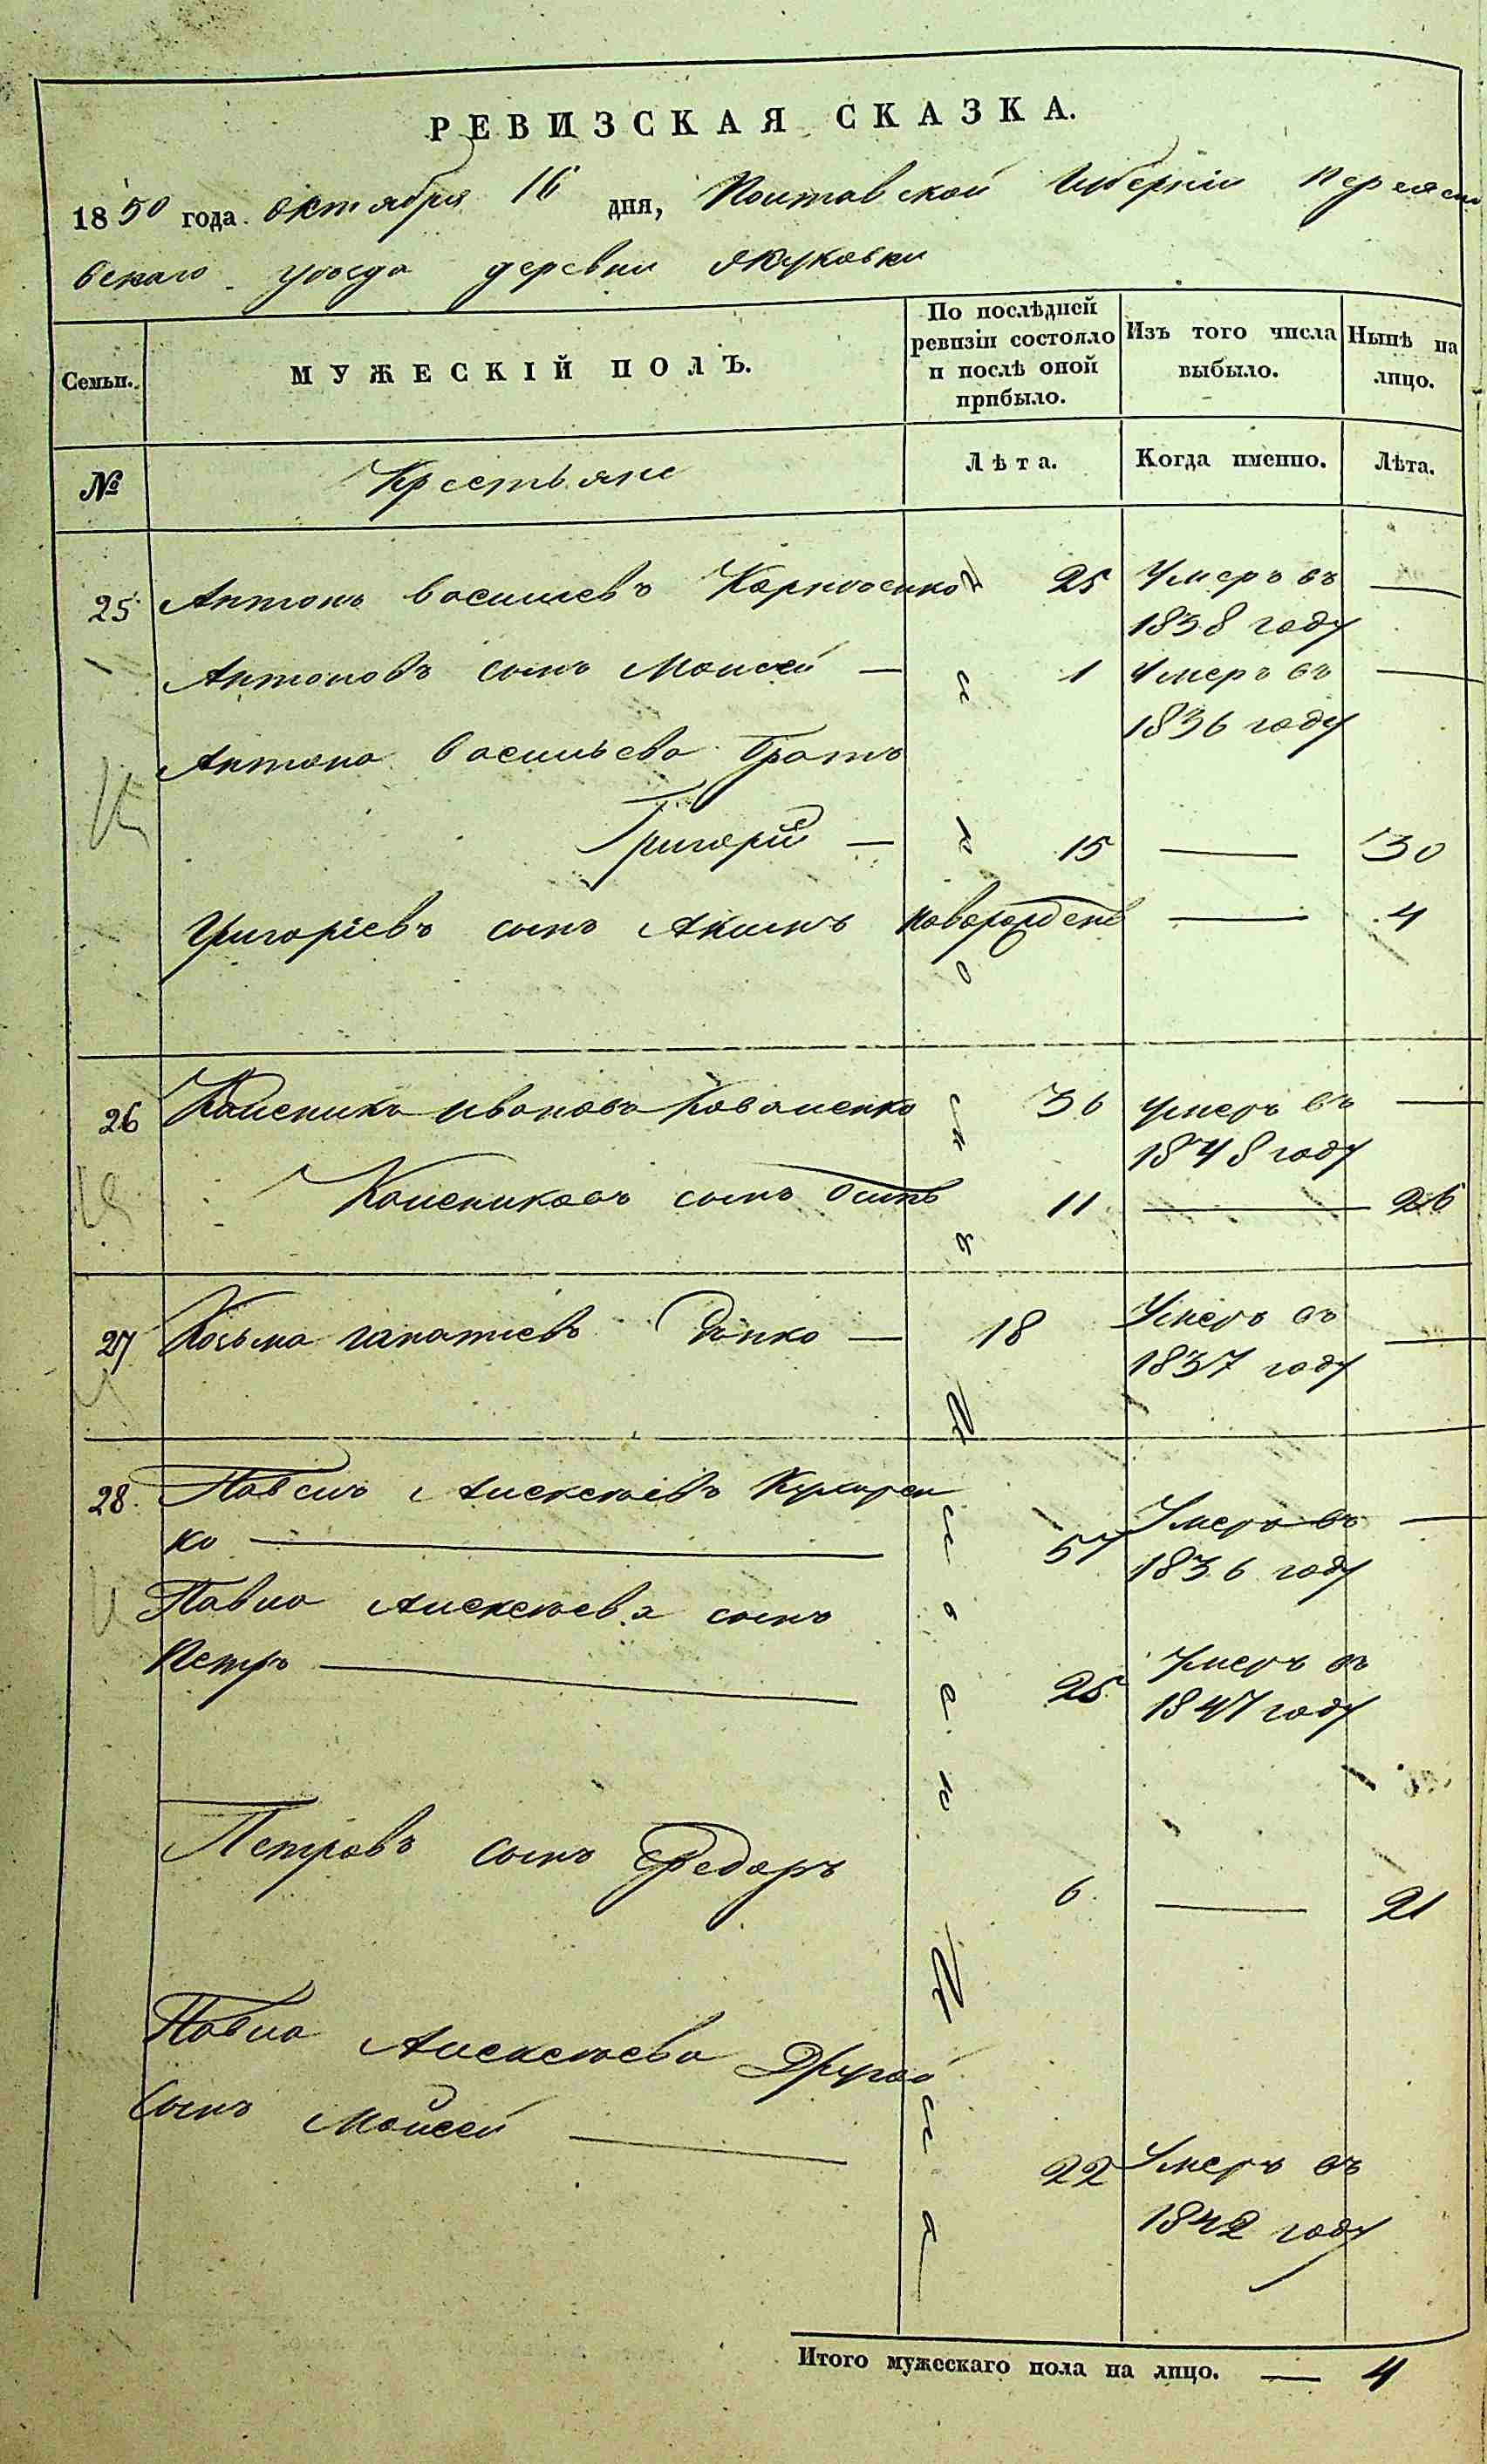 РЕВИЗСКАЯ СКАЗКА.
1850 года октября 16 дня, Полтавской Губерніи Переясла
вскаго уѣзда деревни Якуковки
Семьи.
МУЖЕСКІЙ ПОЛЪ.
По послѣдней
ревизіи состояло
и послѣ оной
прибыло.
Изъ того числа
выбыло.
Нынѣ на
лицо.
№
Крестьяне
Лѣта.
Когда именно.
Лѣта.
25 Антонъ Васильевъ 25 Умеръ въ —
1838 году
Антоновъ сынъ Моисей — 1 Умеръ въ —
1836 году
Антона Васильева братъ
Григорій — 15 — 30
Григоріевъ сынъ Акимъ новорожденъ — 4
26 Каленикъ Ивановъ Коваленко 36 умеръ въ —
1848 году
Калениковъ сынъ Осипъ 11 — 26
27 Козьма Игнатіевъ — 18 Умеръ въ —
1837 году
28. Павелъ Алексѣевъ
ко — 57 Умеръ въ —
1836 году
Павла Алексѣева сынъ
Петръ — 25 Умеръ въ
1847 году
Петровъ сынъ Федоръ
6 — 21
Павла Алексѣева Другой
сынъ Моисей — 22 Умеръ въ
1842 году
Итого мужескаго пола на лицо. — 4